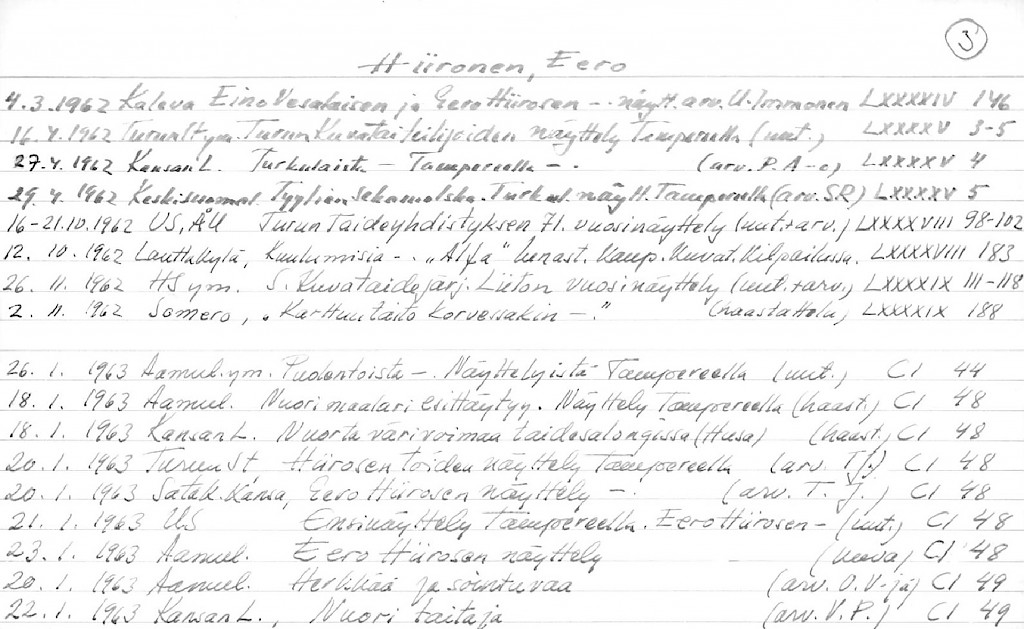 3
Hiironen, Eero
4.3.1962 Kaleva Eino Vesalaisen ja Eero Hiirosen -. näytt. arv. U. Immonen LXXXXIV 146
16.4.1962 TurunSt ym. Turun Kuvataiteilijoiden näyttely Tampereella (uut.) LXXXXV 3-5
27.4.1962 Kansan L. Turkulaista - Tampereella -. (arv. P. A-o) LXXXXV 4
29.4.1962 Keskisuomal. Tyylien sekamelska. Turkul. näytt. Tampereella (arv. SR) LXXXXV 5
16-21.10.1962 US, ÅU Turun Taideyhdistyksen 71. vuosinäyttely (uut.+arv.) LXXXXVIII 98-102
12. 10. 1962 Lauttakylä, Kuulumisia -. "Alfa" lunast. Kaup. Kuvat. Kilpailussa. LXXXXVIII 183
26. 11. 1962 HS ym. S. Kuvataidejärj. Liiton vuosinäyttely (uut.+arv.) LXXXXIX 111-118
2. 11. 1962 Somero, "Karttuu taito Korvessakin -." (haastattelu) LXXXXIX 188
26. 1. 1963 Aamul. ym. Puolentoista -. Näyttelyistä Tampereella (uut.) CI 44
18. 1. 1963 Aamul. Nuori maalari esittäytyy. Näyttely Tampereella (haast.) CI 48
18. 1. 1963 Kansan L. Nuorta värivoimaa taidesalongissa (Husa) (haast.) CI 48
20. 1. 1963 Turun St Hiirosen töiden näyttely Tampereella (arv. Tj.) CI 48
20. 1. 1963 Satak. Kansa, Eero Hiirosen näyttely -. (arv. T. J.) CI 48
21. 1. 1963 US Ensinäyttely Tampereella. Eero Hiirosen - (uut.) CI 48
23. 1. 1963 Aamul. Eero Hiirosen näyttely (kuva) CI 48
20. 1. 1963 Aamul. Herkkää ja sointuvaa (arv. O. V-jä) CI 49
22. 1. 1963 Kansan L., Nuori taitaja (arv. V. P.) CI 49